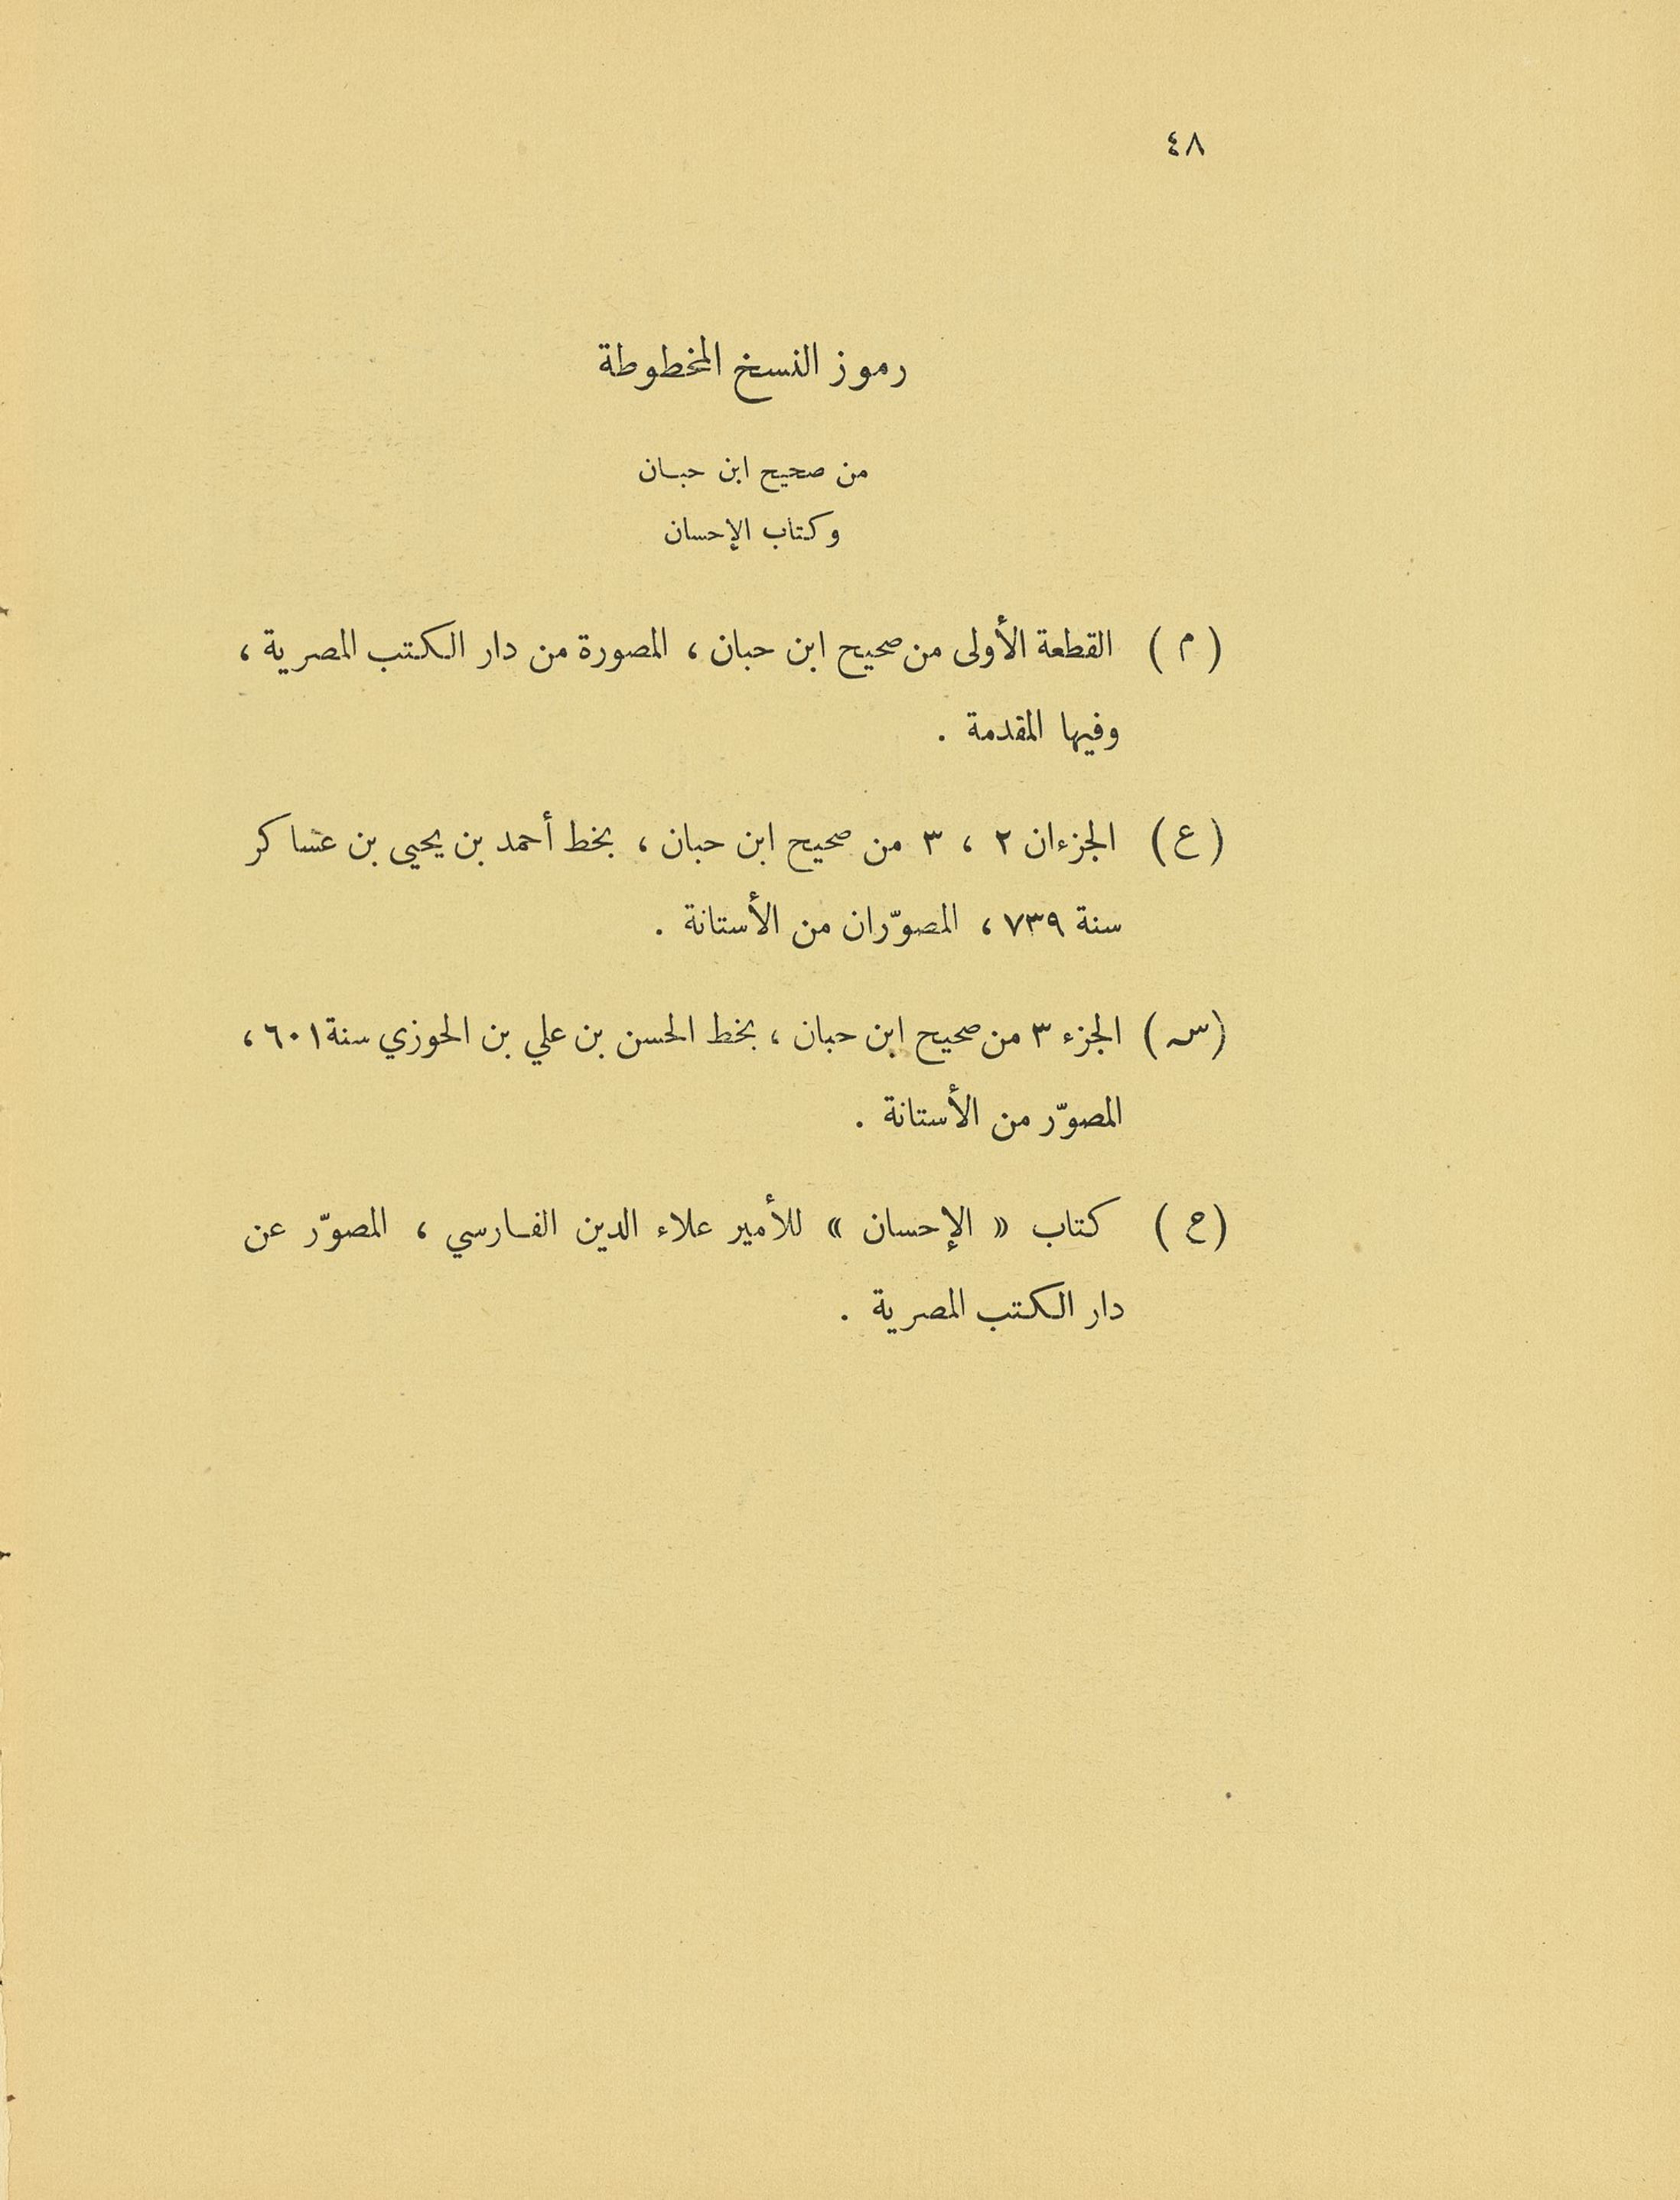 ٤٨
رموز النسخ المخطوطة
من صحيح ابن حبان
وكتاب الإحسان
( م ) القطعة الأولى من صحيح ابن حبان ، المصورة من دار الكتب المصرية ،
وفيها المقدمة .
( ع ) الجزءان ٢ ، ٣ من صحيح ابن حبان ، بخط أحمد بن يحيى بن عساكر
سنة ٧٣٩ ، المصوّران من الأستانة .
( س ) الجزء ٣ من صحيح ابن حبان ، بخط الحسن بن علي بن الحوزي سنة ٦٠١ ،
المصوّر من الأستانة .
( ح ) كتاب « الإحسان » للأمير علاء الدين الفارسي ، المصوّر عن
دار الكتب المصرية .